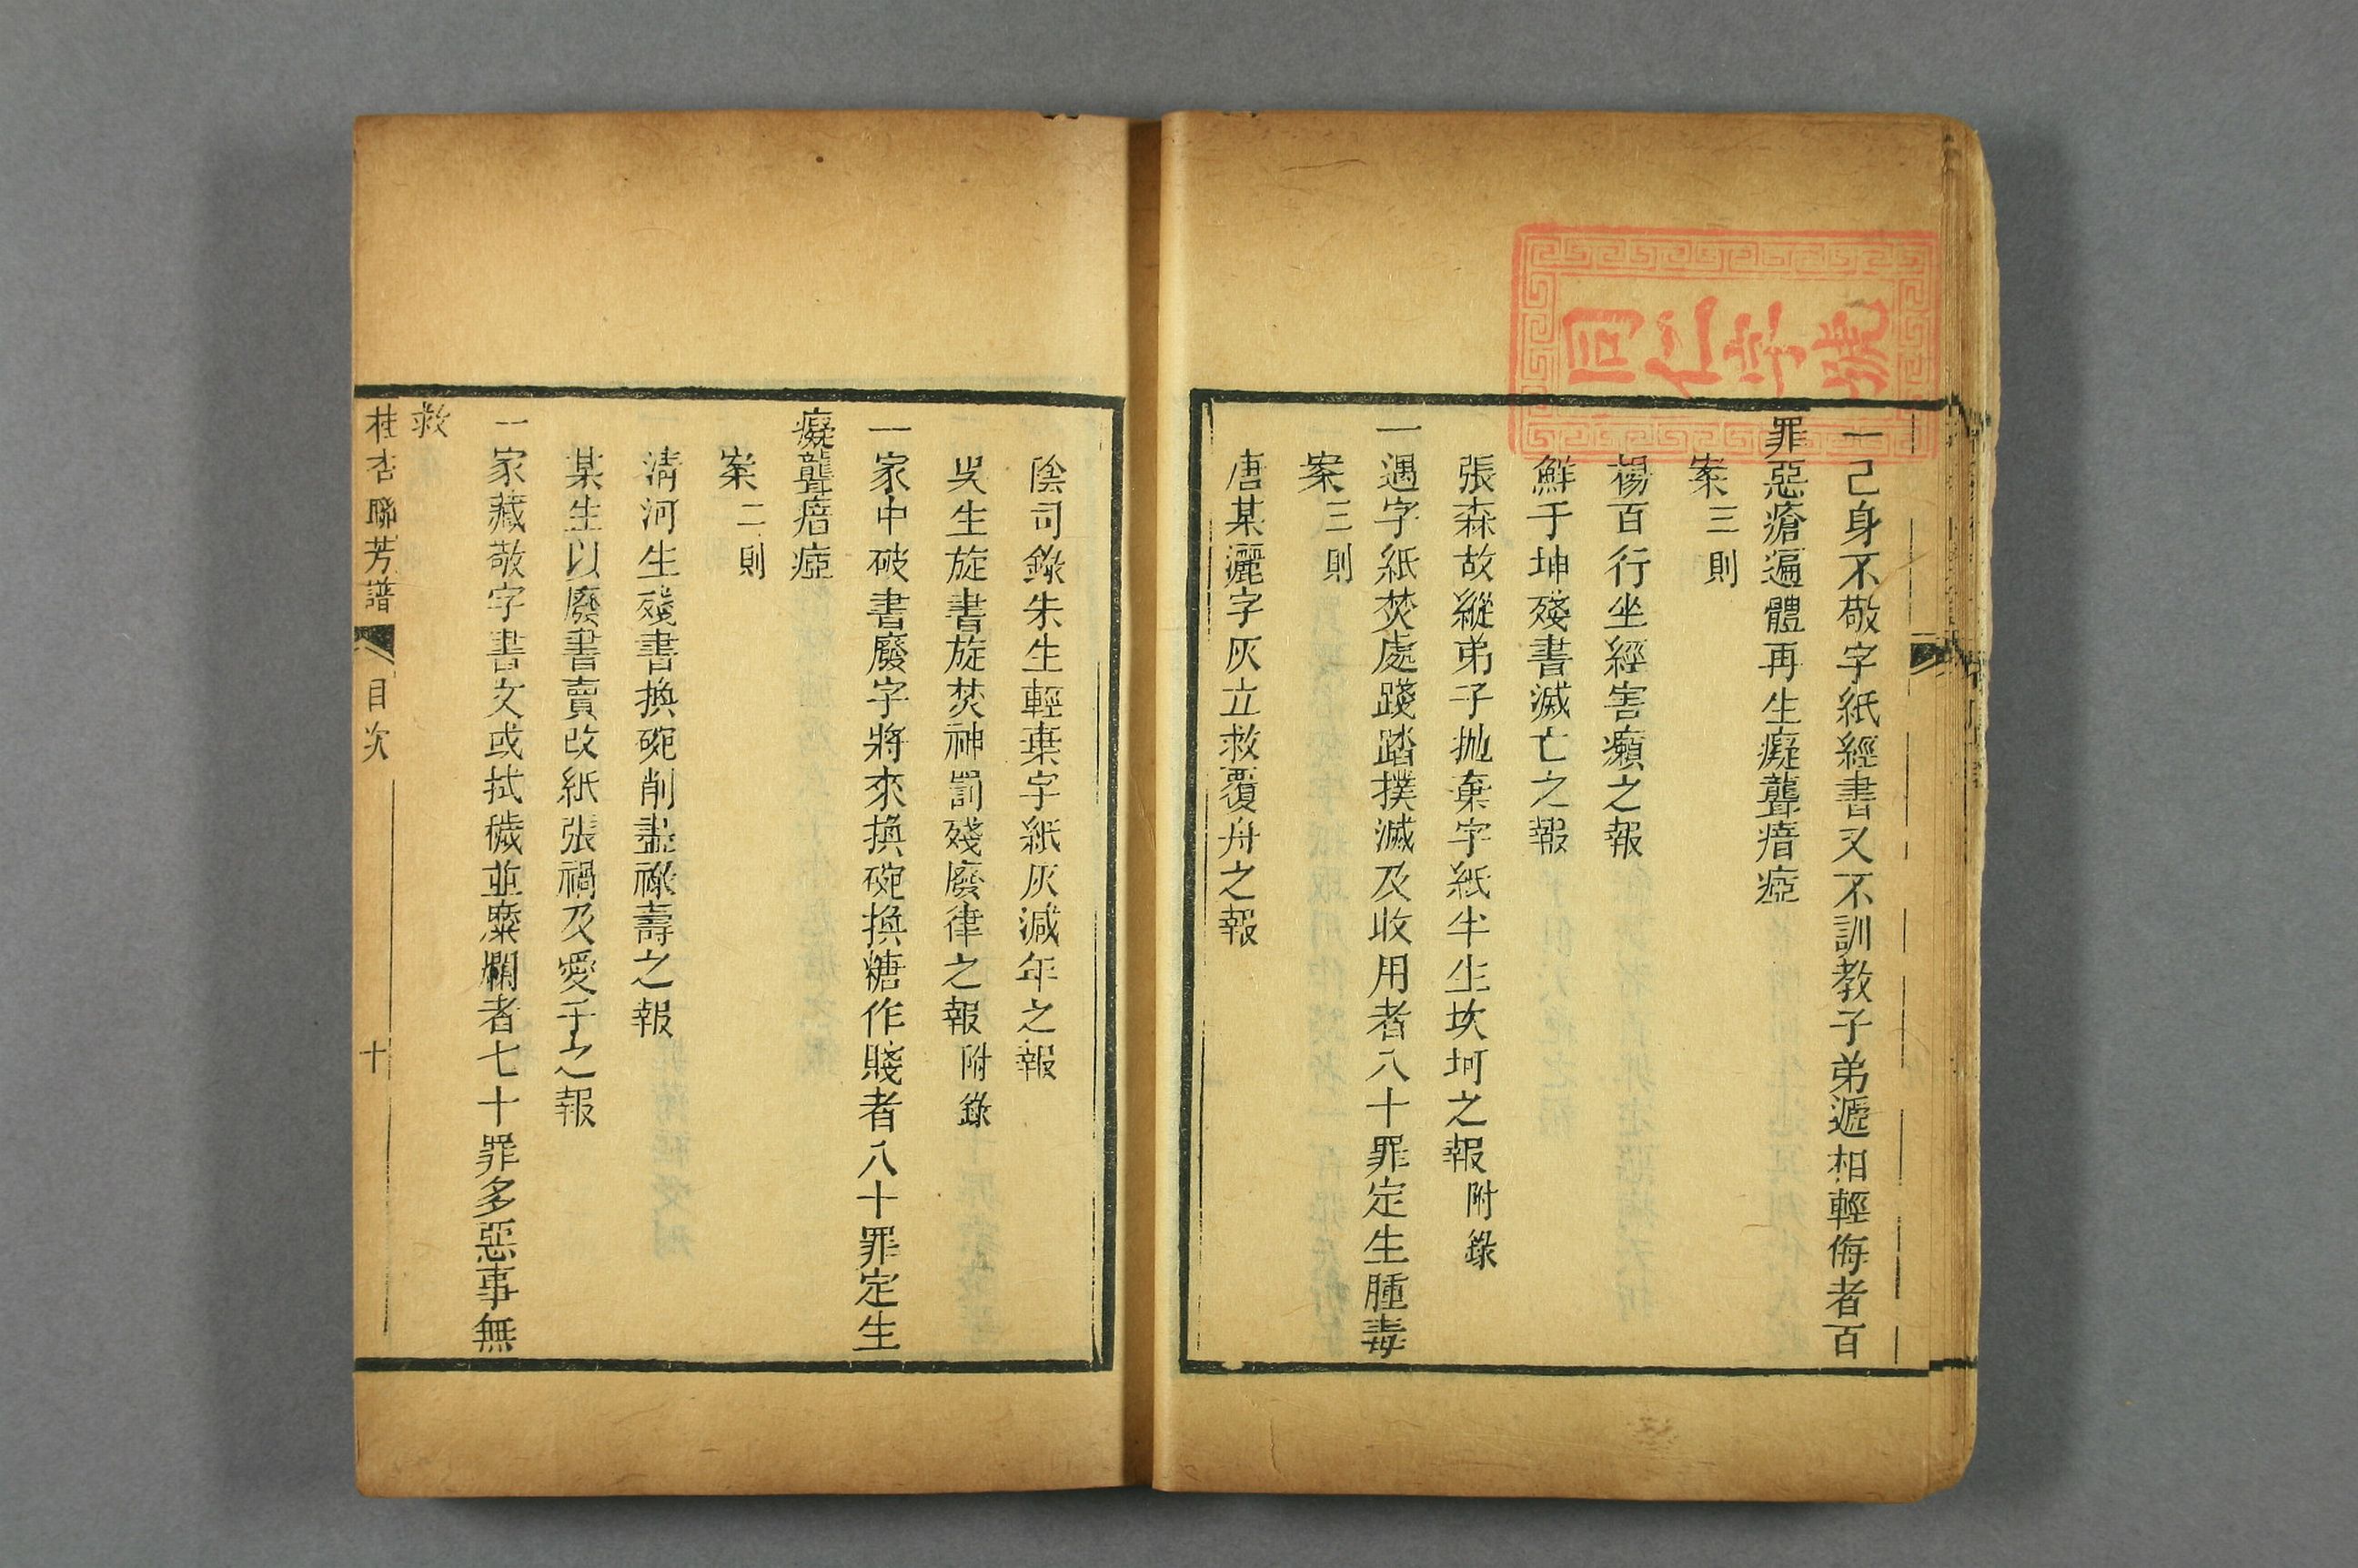 一己身不敬字紙經書又不訓教子弟遞相輕侮者百
罪惡瘡遍體再生癡聾瘖瘂
案三則
楊百行坐經害癩之報
鮮于坤殘書滅亡之報
張森故縱弟子抛棄字紙半生坎坷之報附錄
一遇字紙焚處踐踏撲滅及收用者八十罪定生腫毒
案三則
唐某灑字灰立救覆舟之報
陰司錄朱生輕棄字紙灰減年之報
吳生旋書旋焚神罰殘廢律之報附錄
一家中破書廢字將來換碗換糖作賤者八十罪定生
癡聾瘖瘂
案二則
清河生殘書換碗削盡祿壽之報
某生以廢書賣改紙張禍及愛子之報
一家藏敬字書文或拭穢並糜爛者七十罪多惡事無
救
桂杏聯芳譜
目次
十